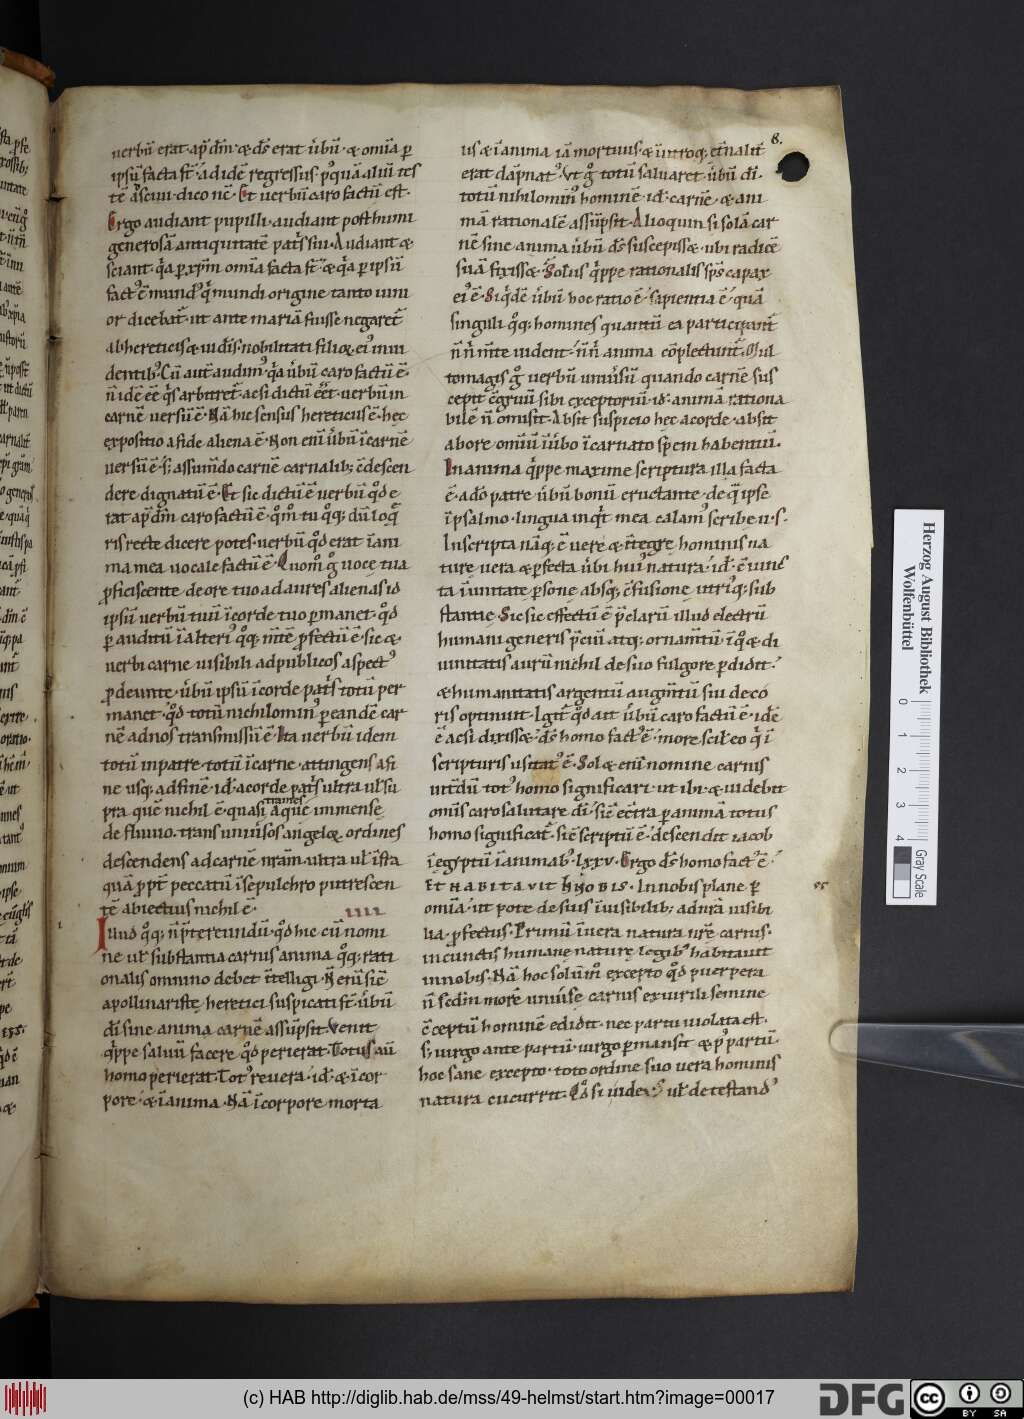 8.
uerbū erat ap̄ dm̄ · & ds̄ erat ūbū · & om̄ia ꝑ
ipsū facta st̄
regressus
Et uerbū caro factū est ·
Ergo audiant pupilli · audiant posthumi
generosā antiquitatē pat̄s sui · Audiant &
sciant · q̄a ꝑ xp̄m om̄ia facta st̄ · & q̄a ꝑ ipsū
fact᷒ ē mund᷒ q̄ mundi origine tanto iuni
or dicebat̄ · ut ante mariā fuisse negaret̄
ab hereticis & iudis · nobilitati filioꝝ ei᷒ inui
dentib᷒ · Cū aut̄ audim᷒ q̄a ūbū caro factū ē ·
n̄ idē ēē q̄s arbitret̄ · acsi dictū eēt · uerbū in
carnē uersū ē · Nā hic sensus hereticus ē · hec
expositio a fide aliena ē · Non eni ūbū ī carnē
uersū ē · s; assumdo carnē carnalib; c̄descen
dere dignatū ē · Et sic dictū ē uerbū qd̄ e
rat ap̄ dm̄ caro factū ē · qm̄ tu qq; dū loq̄
ris recte dicere potes · uerbū qd̄ erat ī ani
ma mea uocale factū ē · Quom̄ g̊ uoce tua
ꝓficiscente · de ore tuo ad aures alienas id
ipsū uerbū tuū ī corde tuo ꝑmanet · qd̄
ꝑ auditū ī alteri᷒ qq; m̄te ꝓfectū ē · sic &
uerbi carne uisibili ad publicos aspect᷒
ꝓdeunte · ūbū ipsū ī corde pat̄s totū per
manet · qd̄ totū nichilomin᷒ ꝑ eandē car
nē ad nos transmissū ē · Ita uerbū idem
totū in patre · totū ī carne · attingens a fi
ne usq; ad finē · id̄ · a corde pat̄s ultra ul̄ su
pra quē nichil ē · quasi trames aque immense
de fluuio · trans uniūsos angeloꝝ ordines
descendens ad carnē nr̄am · ultra ul̄ īfra
quā ꝓpt̄ peccatū ī sepulchro putrescen
tē abiectius nichil ē ·
IIII
Illud qq; n̄ p̄tereundū · qd̄ hic cū nomi
ne ul̄ substantia carnis anima qq; rati
onalis omnino debet ītelligi · N̄ eni sic̄
apollinariste heretici suspicati st̄ · ūbū
dī sine anima carnē assūpsit · Venit
q̄ppe saluū facere qd̄ perierat · Totus aū
homo perierat · Tot᷒ reuera · id̄ · & ī cor
pore · & ī anima · Nā ī corpore morta
us & ī anima iā mortuus · & ī utroq; et̄nalit̄
erat dāpnat᷒ · Vt g̊ totū saluaret ūbū dī ·
totū nihilomin᷒ hominē · id̄ · carnē · & ani
mā rationalē assūpsit · Alioquin si solā car
nē sine anima ūbū ds̄ suscepiss& · ubi radicē
suā fixiss& · Solus q̄ppe rationalis sp̄s capax
ei᷒ ē · Siqdē ūbū hoc ratio ē · sapientia ē · quā
singuli qq; homines quantū ea participant̄
n̄ n̄ m̄te uident · n̄ n̄ anima cōplectunt̄ · Mul
tomagis g̊ uerbū uniūsū quando carnē sus
cepit c̄gruū sibi exceptoriū · id̄ · animā rationa
bilē n̄ omisit · Absit suspicio hec a corde · absit
ab ore omiū ī ūbo ī carnato spem habentiū ·
In anima q̄ppe maxime scriptura illa facta
ē · a dō patre ūbū bonū eructante · de q̄ ipse
ī psalmo · lingua inq̄t mea calam᷒ scribe · u · s ·
Inscripta nāq; ē uere & ītegre hominis na
ture uera & ꝑfecta ūbi hui᷒ natura · id̄ · ē unē
ta ī unitate ꝑsone absq; c̄fusione utri᷒q; sub
stantie · Sic sic effectū ē p̄clarū illud electrū
humani generis p̄ciū atq; ornam̄tū · ī q̊ & di
uinitatis aurū nichil de suo fulgore ꝑdidit ·
& humanitatis argentū augm̄tū sui deco
ris optinuit · Igit̄ qd̄ ait ūbū caro factū ē · idē
ē acsi dixiss& · ds̄ homo fact᷒ ē · more scil · eo q̄ ī
scripturis usitat᷒ ē · Sol& enī nomine carnis
int̄dū tot᷒ homo significari · ut ibi · & uidebit
omis caro salutare dī · sic̄ ec̄tra ꝑ animā totus
homo significat̄ · sic̄ scriptū ē · descendit iacob
ī egyptū ī animab᷒ · lxxv · Ergo ds̄ homo fact᷒ ē ·
ET HABITAVIT IN NOBIS · In nobis plane ꝑ
om̄ia · ut pote de suis ī uisibilib; ad nr̄a uisibi
lia ꝓfectus · Primū ī uera natura nr̄e carnis ·
in cunctis humane nature legib᷒ habitauit
in nobis · Nā hoc solūm excepto qd̄ puerpera
n̄ scdm morē uniūse carnis ex uirili semine
c̄ceptū hominē edidit · nec partu uiolata est ·
s; uirgo ante partū · uirgo ꝑmansit & p᷒ partū ·
hoc sane excepto · toto ordine suo uera hominis
natura cucurrit · Qd̄ si iudex · ul̄ detestand᷒
Herzog August Bibliothek
Wolfenbüttel
0 1 2 3 4
Gray Scale
(c) HAB http://diglib.hab.de/mss/49-helmst/start.htm?image=00017
DFG
cc BY SA